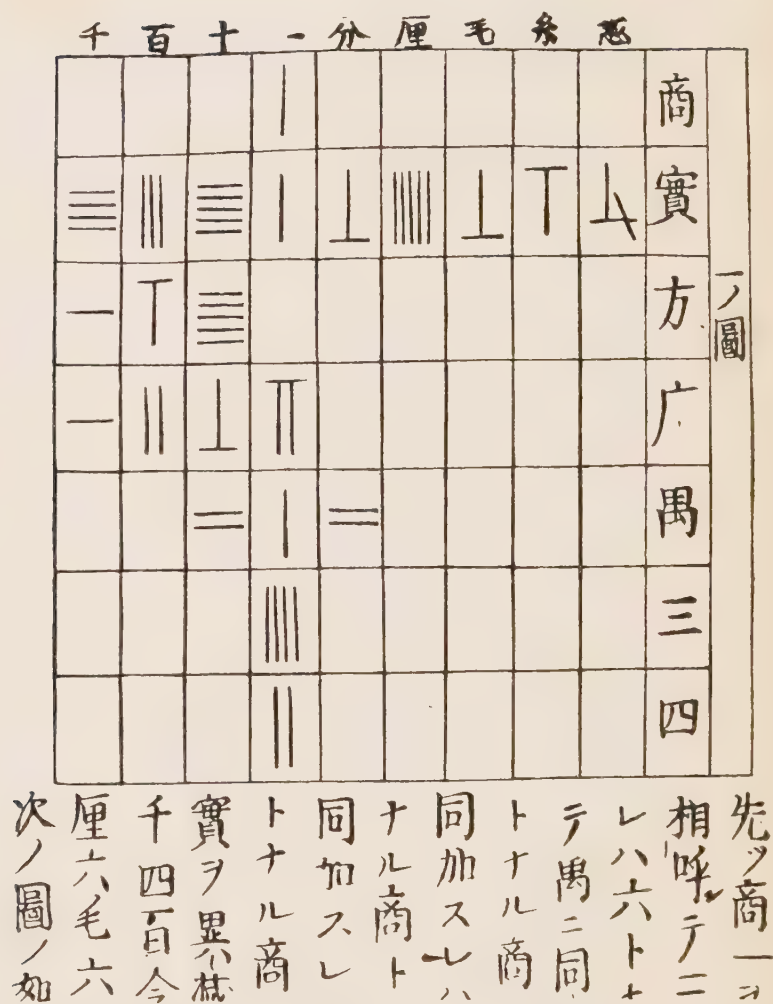 一ノ圖
千百十一分厘毛糸忽
商
實
方
广
禺
三
四
先ツ商一ヲ
相呼テ二
レハ六トナ
テ禺ニ同
トナル商
同加スレハ
ナル商ト
同加スレ
トナル商
實ヲ異減
千四百令
厘六毛六
次ノ圖ノ如